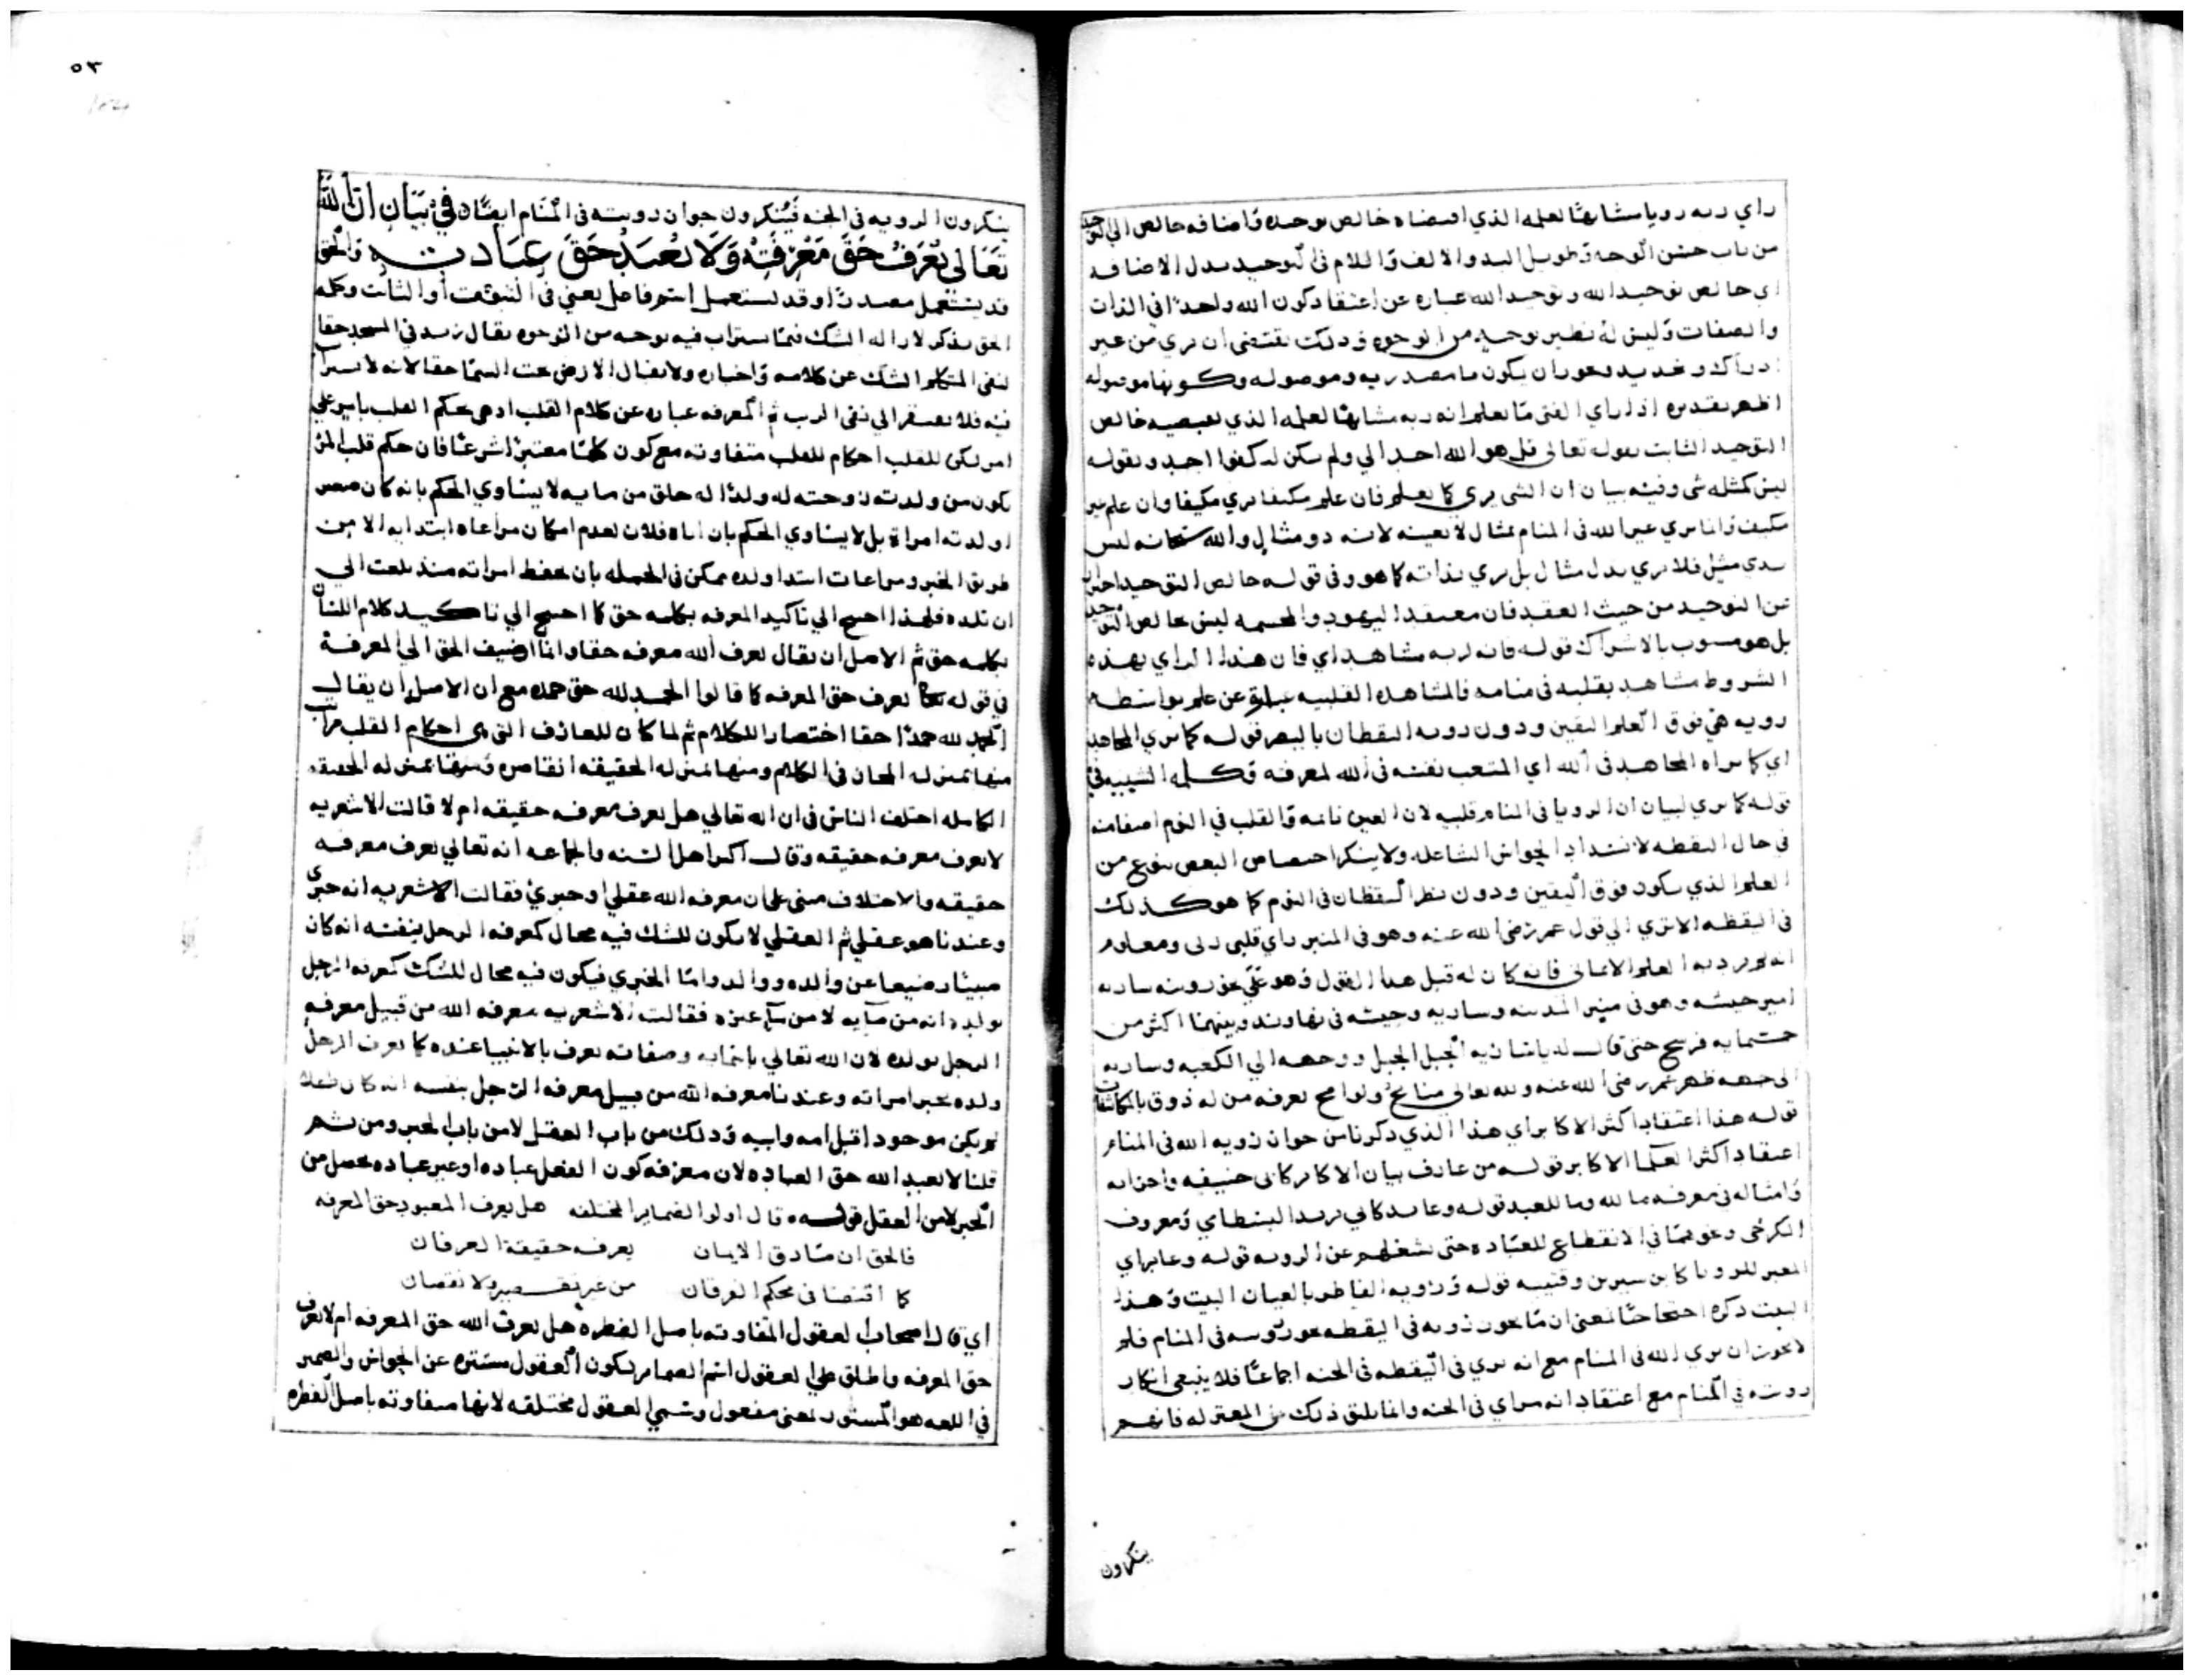 راي ربه رويا مشابها لعلمه الذي اقتضاه خالص توحيده واضافه خالص الي التوحيد
من باب حسن الوجه وطويل اليد والالف واللام في التوحيد بدل الاضافه
اي خالص توحيد الله وتوحيد الله عباره عن اعتقاد كون الله واحدا في الذات
والصفات وليس له نظير بوجه من الوجوه وذلك يقتضي ان يري من غير
ادراك وتحديد ويجوز ان يكون ما مصدريه وموصوله وكونها موصوله
اظهر تقديره اذا راي الفتي ما يعلم انه ربه مشابها لعلمه الذي خالص
التوحيد الثابت بقوله تعالي قل هو الله احد الي ولم يكن له كفوا احد وبقوله
ليس كمثله شي وفيه بيان ان الشي يري كما يعلم فان علم مكيفا يري مكيفا وان علم غير
مكيف وانما يري غير الله في المنام بمثال لا بعينه لانه ذو مثال والله سبحانه ليس
بذي مثل فلا يري بدل مثال بل يري بذاته كما هو وفي قوله خالص التوحيد احتراز
عن التوحيد من حيث العقد فان معتقد اليهود والمجسمه ليس بخالص التوحيد
بل هو مشوب بالاشراك قوله فانه لربه مشاهد اي فان هذا الراي بهذه
الشروط مشاهد بقلبه في منامه فالمشاهده القلبيه عبارة عن علم بواسطه
رويه هي فوق العلم اليقين ودون رويه اليقظان بالبصر قوله كما يري المجاهد
اي كما يراه المجاهد في الله اي المتعب نفسه في الله لمعرفه وكلمه التشبيه في
قوله كما يري لبيان ان الرويا في المنام قلبيه لان العين نائمه والقلب في النوم اصفا منه
في حال اليقظه لانسداد الحواس الشاغله ولا ينكر اختصاص البعض بنوع من
العلم الذي يكون فوق اليقين ودون نظر اليقظان في النوم كما هو كذلك
في اليقظه الا تري الي قول عمر رضي الله عنه وهو في المنبر راي قلبي ربي ومعلوم
انه لم يرد به العلم الايماني فانه كان له قبل هذا القول وهو علي نحو رويته ساريه
امير جيشه وهو في منبر المدينه وساريه وجيشه في نهاوند وبينهما اكثر من
خمسمايه فرسخ حتي قال له يا ساريه الجبل الجبل ووجهه الي الكعبه وساريه
الي جهه ظهر عمر رضي الله عنه ولله تعالي منائح ولوامح يعرفه من له ذوق بالمكاشفات
قوله هذا اعتقاد اكثر الاكابر اي هذا الذي ذكرنا من جواز رويه الله في المنام
اعتقاد اكثر العلما الاكابر قوله من عارف بيان الاكابر كابي حنيفه واحزابه
وامثاله في معرفه ما لله وما للعبد قوله وعابد كابي يزيد البسطامي ومعروف
الكرخي ونحوهما في الانقطاع للعباده حتي شغلهم عن الرويه قوله وعابر اي
المعبر للرويا كابن سيرين وقتيبه قوله ورويه الفاطر بالعيان البيت وهذا
البيت ذكره احتجاجا يعني ان ما يجوز رويه في اليقظه يجوز رويته في المنام فلم
لا يجوز ان يري الله في المنام مع انه يري في اليقظه في الجنه اجماعا فلا ينبغي انكار
رويته في المنام مع اعتقاد انه مراي في الجنه وانما يليق ذلك من المعتزله فانهم
ينكرون
٥٣
ينكرون الرويه في الجنه فينكرون جواز رويته في المنام ايضا في بيان ان الله
تعالى يعرف حق معرفته ولا يعبد حق عبادته والحق
قد يستعمل مصدرا وقد يستعمل اسم فاعل يعني في الثبوت او الثابت وكلمه
الحق يذكر لازاله الشك فيما يستراب فيه بوجه من الوجوه يقال زيد في المسجد حقا
لنفي المتكلم الشك عن كلامه واخباره ولا يقال الارض تحت السما حقا لانه لا يستراب
فيه فلا يفتقر الي نفي الريب ثم المعرفه عباره عن كلام القلب اذ هي حكم القلب بامر علي
امر لكن للقلب احكام للقلب متفاوته مع كون كلها معتبرا شرعا فان حكم قلب المرء
بكون من ولدته زوجته له ولدا له خلق من مايه لا يساوي الحكم بانه كان
او ولدته امراة بل لا يساوي الحكم بان اباه فلان لعدم امكان مراعاه ابتدا ابيه الا من
طريق الخبر ومراعات ابتدا ولده ممكن في الجمله بان يحفظ امراته منذ بلغت الي
ان تلده فلهذا احتيج الي تاكيد المعرفه بكلمه حق كما احتيج الي تاكيد كلام اللسان
بكلمه حق ثم الاصل ان يقال يعرف الله معرفه حقا وانما اضيف الحق الي المعرفة
في قوله يعرف حق المعرفه كما قالوا الحمد لله حق حمده مع ان الاصل ان يقال
الحمد لله حمدا حقا اختصارا للكلام ثم لما كان للمعارف التي هي احكام القلب مراتب
منها بمنزله المجاز في الكلام ومنها بمنزله الحقيقه القاصره ومنها بمنزله الحقيقه
الكامله اختلف الناس في ان الله تعالي هل يعرف معرفه حقيقه ام لا قالت الاشعريه
لا يعرف معرفه حقيقه وقال اكثر اهل السنه والجماعه انه تعالي يعرف معرفه
حقيقه والاختلاف مبني علي ان معرفه الله عقلي او خبري فقالت الاشعريه انه خبري
وعندنا هو عقلي ثم العقلي لا يكون للشك فيه مجال كمعرفه الرجل بنفسه انه كان
صبيا رضيعا عن والده ووالد واما الخبري فيكون فيه مجال للشك كمعرفه الرجل
بولده انه من مايه لا من ماء غيره فقالت الاشعريه معرفه الله من قبيل معرفه
الرجل بولده لان الله تعالي باسمايه وصفاته يعرف بالانبيا عنده كما يعرف الرجل
ولده بخبر امراته وعندنا معرفه الله من قبيل معرفه الرجل بنفسه انه كان طفلا
لم يكن موجودا قبل امه وابيه وذلك من باب العقل لا من باب الخبر ومن ثم
قلنا لا يعبد الله حق العباده لان معرفه كون الفعل عباده او غير عباده يحصل من
الخبر لا من العقل قوله قال اولوا الضماير المختلفه هل يعرف المعبود حق المعرفه
فالحق ان صادق الايمان يعرفه حقيقة العرفان
كما اقتضا في محكم الفرقان من غير تقصير ولا نقصان
اي قال اصحاب العقول المتفاوته باصل الفطره هل يعرف الله حق المعرفه ام لا يعرف
حق المعرفه واطلق علي العقول اسم الضماير لكون العقول مستتره عن الحواس والضمير
في اللغه هو المستور بمعني مفعول وسمي العقول مختلفه لانها متفاوته باصل الفطره